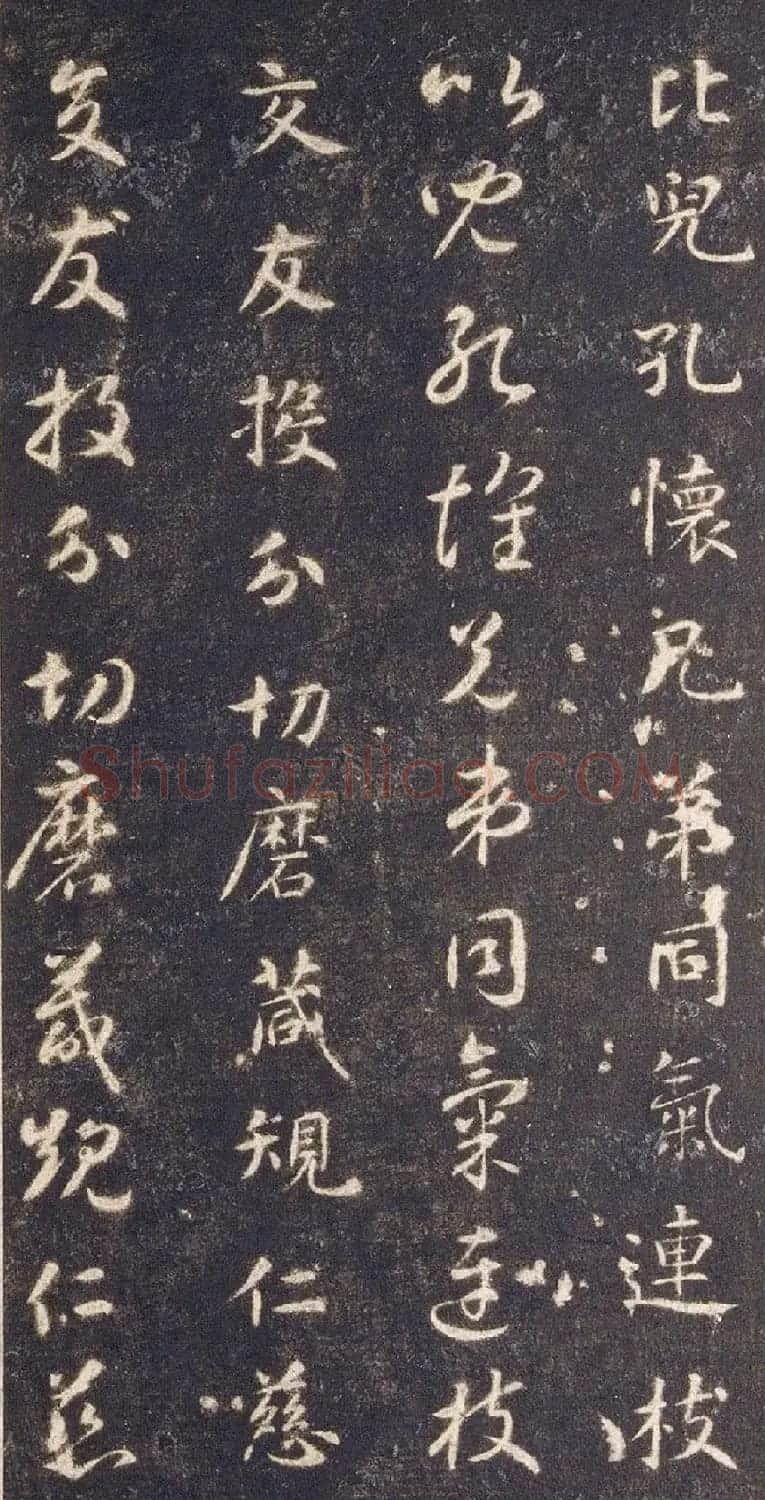 比兒孔懷兄弟同氣連枝
比兒孔懷兄弟同氣連枝
交友投分切磨箴規仁慈
交友投分切磨箴規仁慈
Shufaziliao.COM